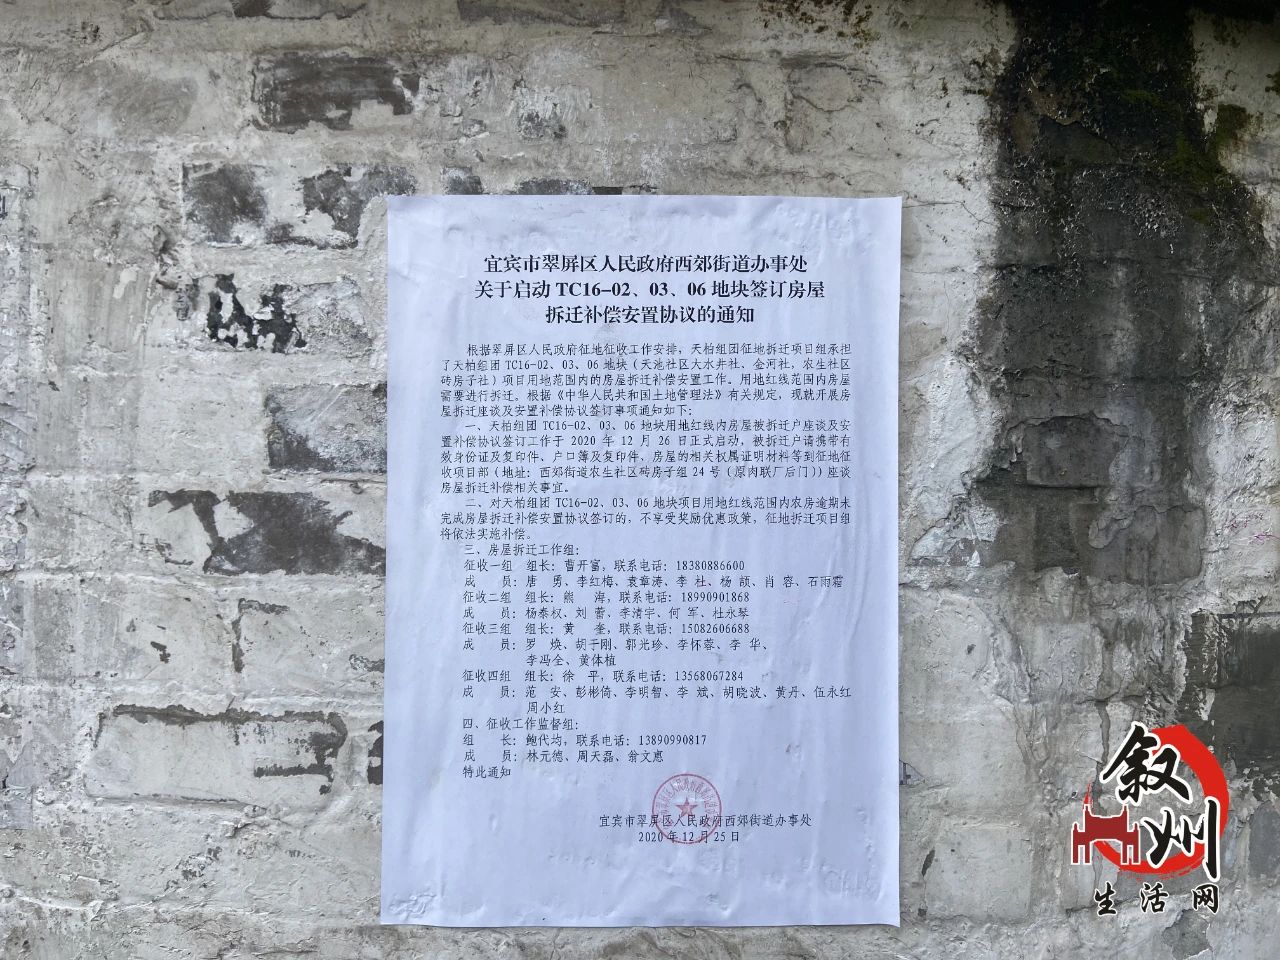 宜宾市翠屏区人民政府西郊街道办事处
关于启动 TC16-02、03、06 地块签订房屋
拆迁补偿安置协议的通知
根据翠屏区人民政府征地征收工作安排，天柏组团征地拆迁项目组承担
了天柏组团 TC16-02、03、06 地块（天池社区大水井社、金河社，农生社区
砖房子社）项目用地范围内的房屋拆迁补偿安置工作。用地红线范围内房屋
需要进行拆迁。根据《中华人民共和国土地管理法》有关规定，现就开展房
屋拆迁座谈及安置补偿协议签订事项通知如下：
一、天柏组团 TC16-02、03、06 地块用地红线内房屋被拆迁户座谈及安
置补偿协议签订工作于 2020 年 12 月 26 日正式启动，被拆迁户请携带有
效身份证及复印件、户口簿及复印件、房屋的相关权属证明材料等到征地征
收项目部（地址：西郊街道农生社区砖房子组 24 号（原肉联厂后门））座谈
房屋拆迁补偿相关事宜。
二、对天柏组团 TC16-02、03、06 地块项目用地红线范围内农房逾期未
完成房屋拆迁补偿安置协议签订的，不享受奖励优惠政策，征地拆迁项目组
将依法实施补偿。
三、房屋拆迁工作组：
征收一组 组长：曹开富，联系电话：18380886600
成 员：唐 勇、李红梅、袁章涛、李 杜、杨 颉、肖 容、石雨霜
征收二组 组长：熊 海，联系电话：18990901868
成 员：杨泰权、刘 蕾、李清宇、何 军、杜永琴
征收三组 组长：黄 奎，联系电话：15082606688
成 员：罗 焕、胡于刚、郭光珍、李怀蓉、李 华、
李冯全、黄体植
征收四组 组长：徐 平，联系电话：13568067284
成 员：范 安、彭彬倚、李明智、李 斌、胡晓波、黄丹、伍永红
周小红
四、征收工作监督组：
组 长：鲍代均，联系电话：13890990817
成 员：林元德、周天磊、翁文惠
特此通知
宜宾市翠屏区人民政府西郊街道办事处
2020 年 12 月 25 日
叙州
生活网